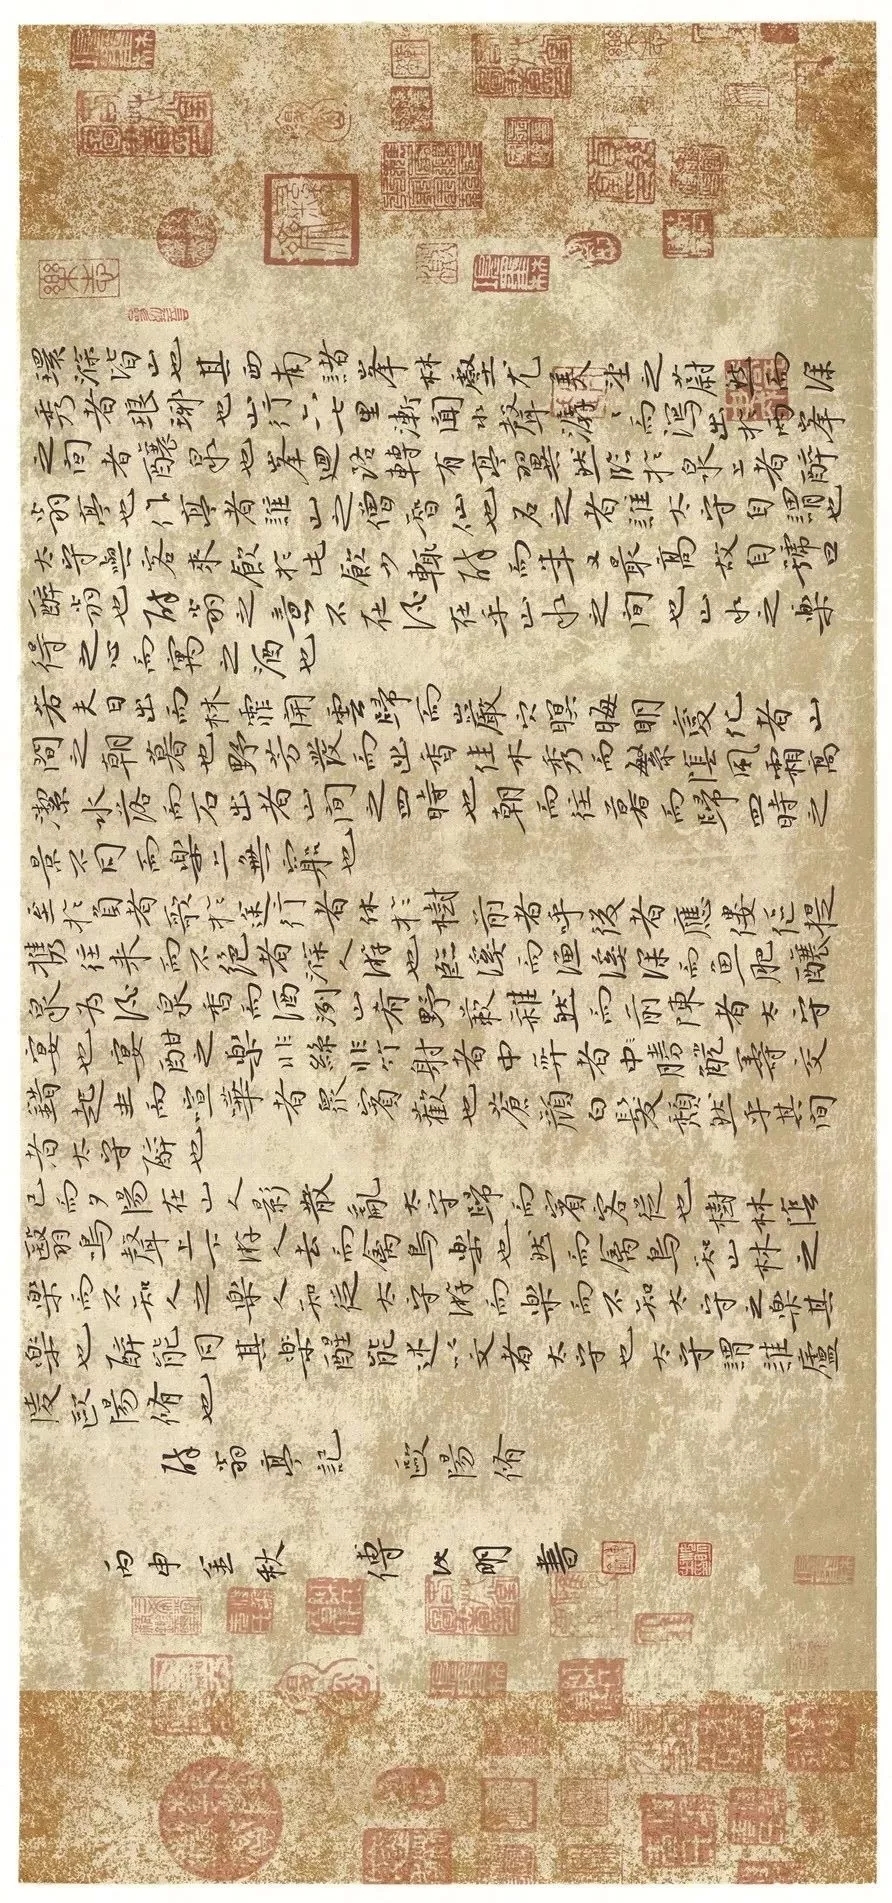 環滁皆山也其西南諸峯林壑尤美望之蔚然而深
秀者琅琊也山行六七里漸聞水聲潺〻而瀉出於兩峯
之間者釀泉也峯迴路轉有亭翼然臨於泉上者醉
翁亭也作亭者誰山之僧智仙也名之者誰太守自謂也
太守與客來飲於此飲少輒醉而年又最高故自號曰
醉翁也醉翁之意不在酒在乎山水之間也山水之樂
得之心而寓之酒也
若夫日出而林霏開雲歸而巖穴暝晦明變化者山
間之朝暮也野芳發而幽香佳木秀而繁陰風霜高
潔水落而石出者山間之四時也朝而往暮而歸四時之
景不同而樂亦無窮也
至於負者歌於途行者休於樹前者呼後者應僂傴提
携往來而不絕者滁人游也臨溪而漁溪深而魚肥釀
泉為酒泉香而酒洌山肴野蔌雜然而前陳者太守
宴也宴酣之樂非絲非竹射者中弈者勝觥籌交
錯起坐而喧華者眾賓歡也蒼顏白髮頹然乎其間
者太守醉也
已而夕陽在山人影散亂太守歸而賓客從也樹林陰
翳鳴聲上下游人去而禽鳥樂也然而禽鳥知山林之
樂而不知人之樂人知從太守游而樂而不知太守之樂其
樂也醉能同其樂醒能述以文者太守也太守謂誰廬
陵歐陽脩也
醉翁亭記 歐陽脩
丙申金秋 傅汝明書